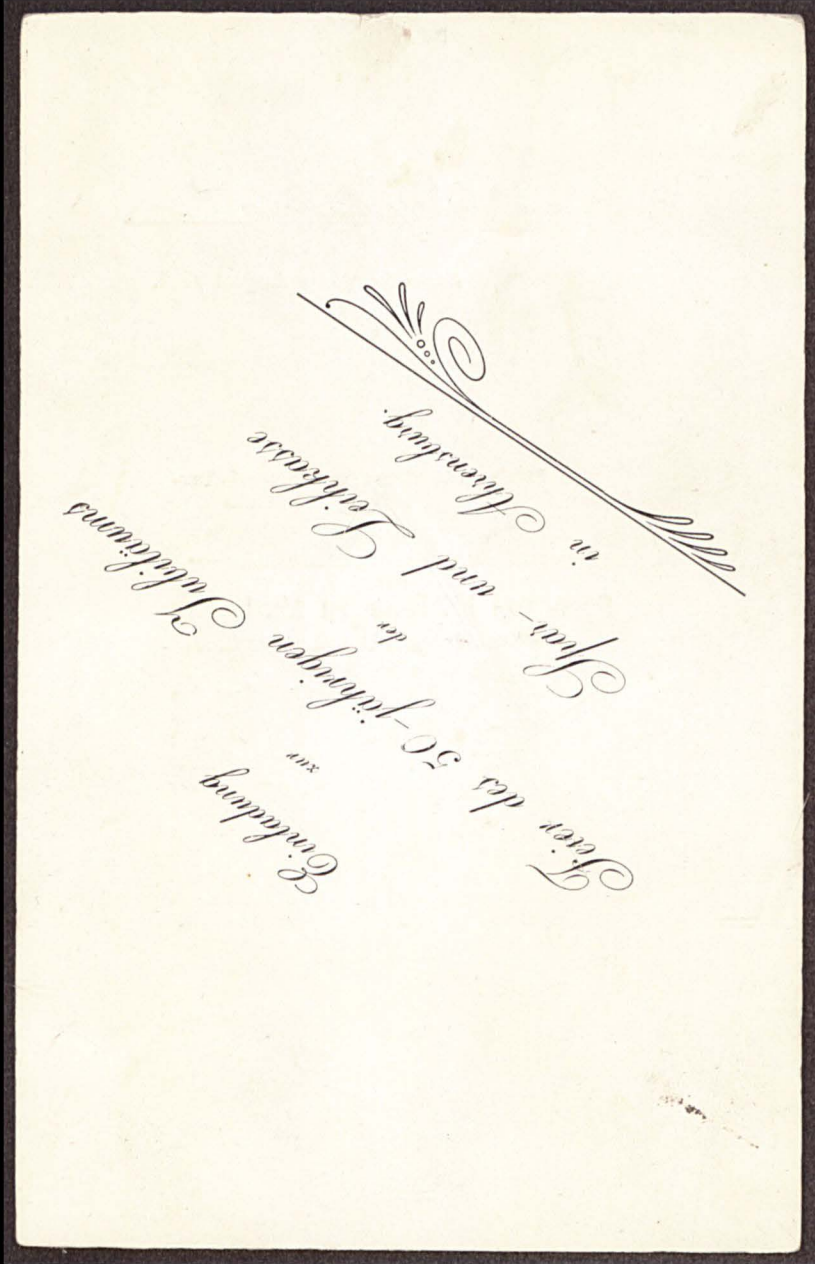 Einladung
zur
Feier des 50-jährigen Jubiläums
der
Spar- und Leihkasse
in Ahrensburg.